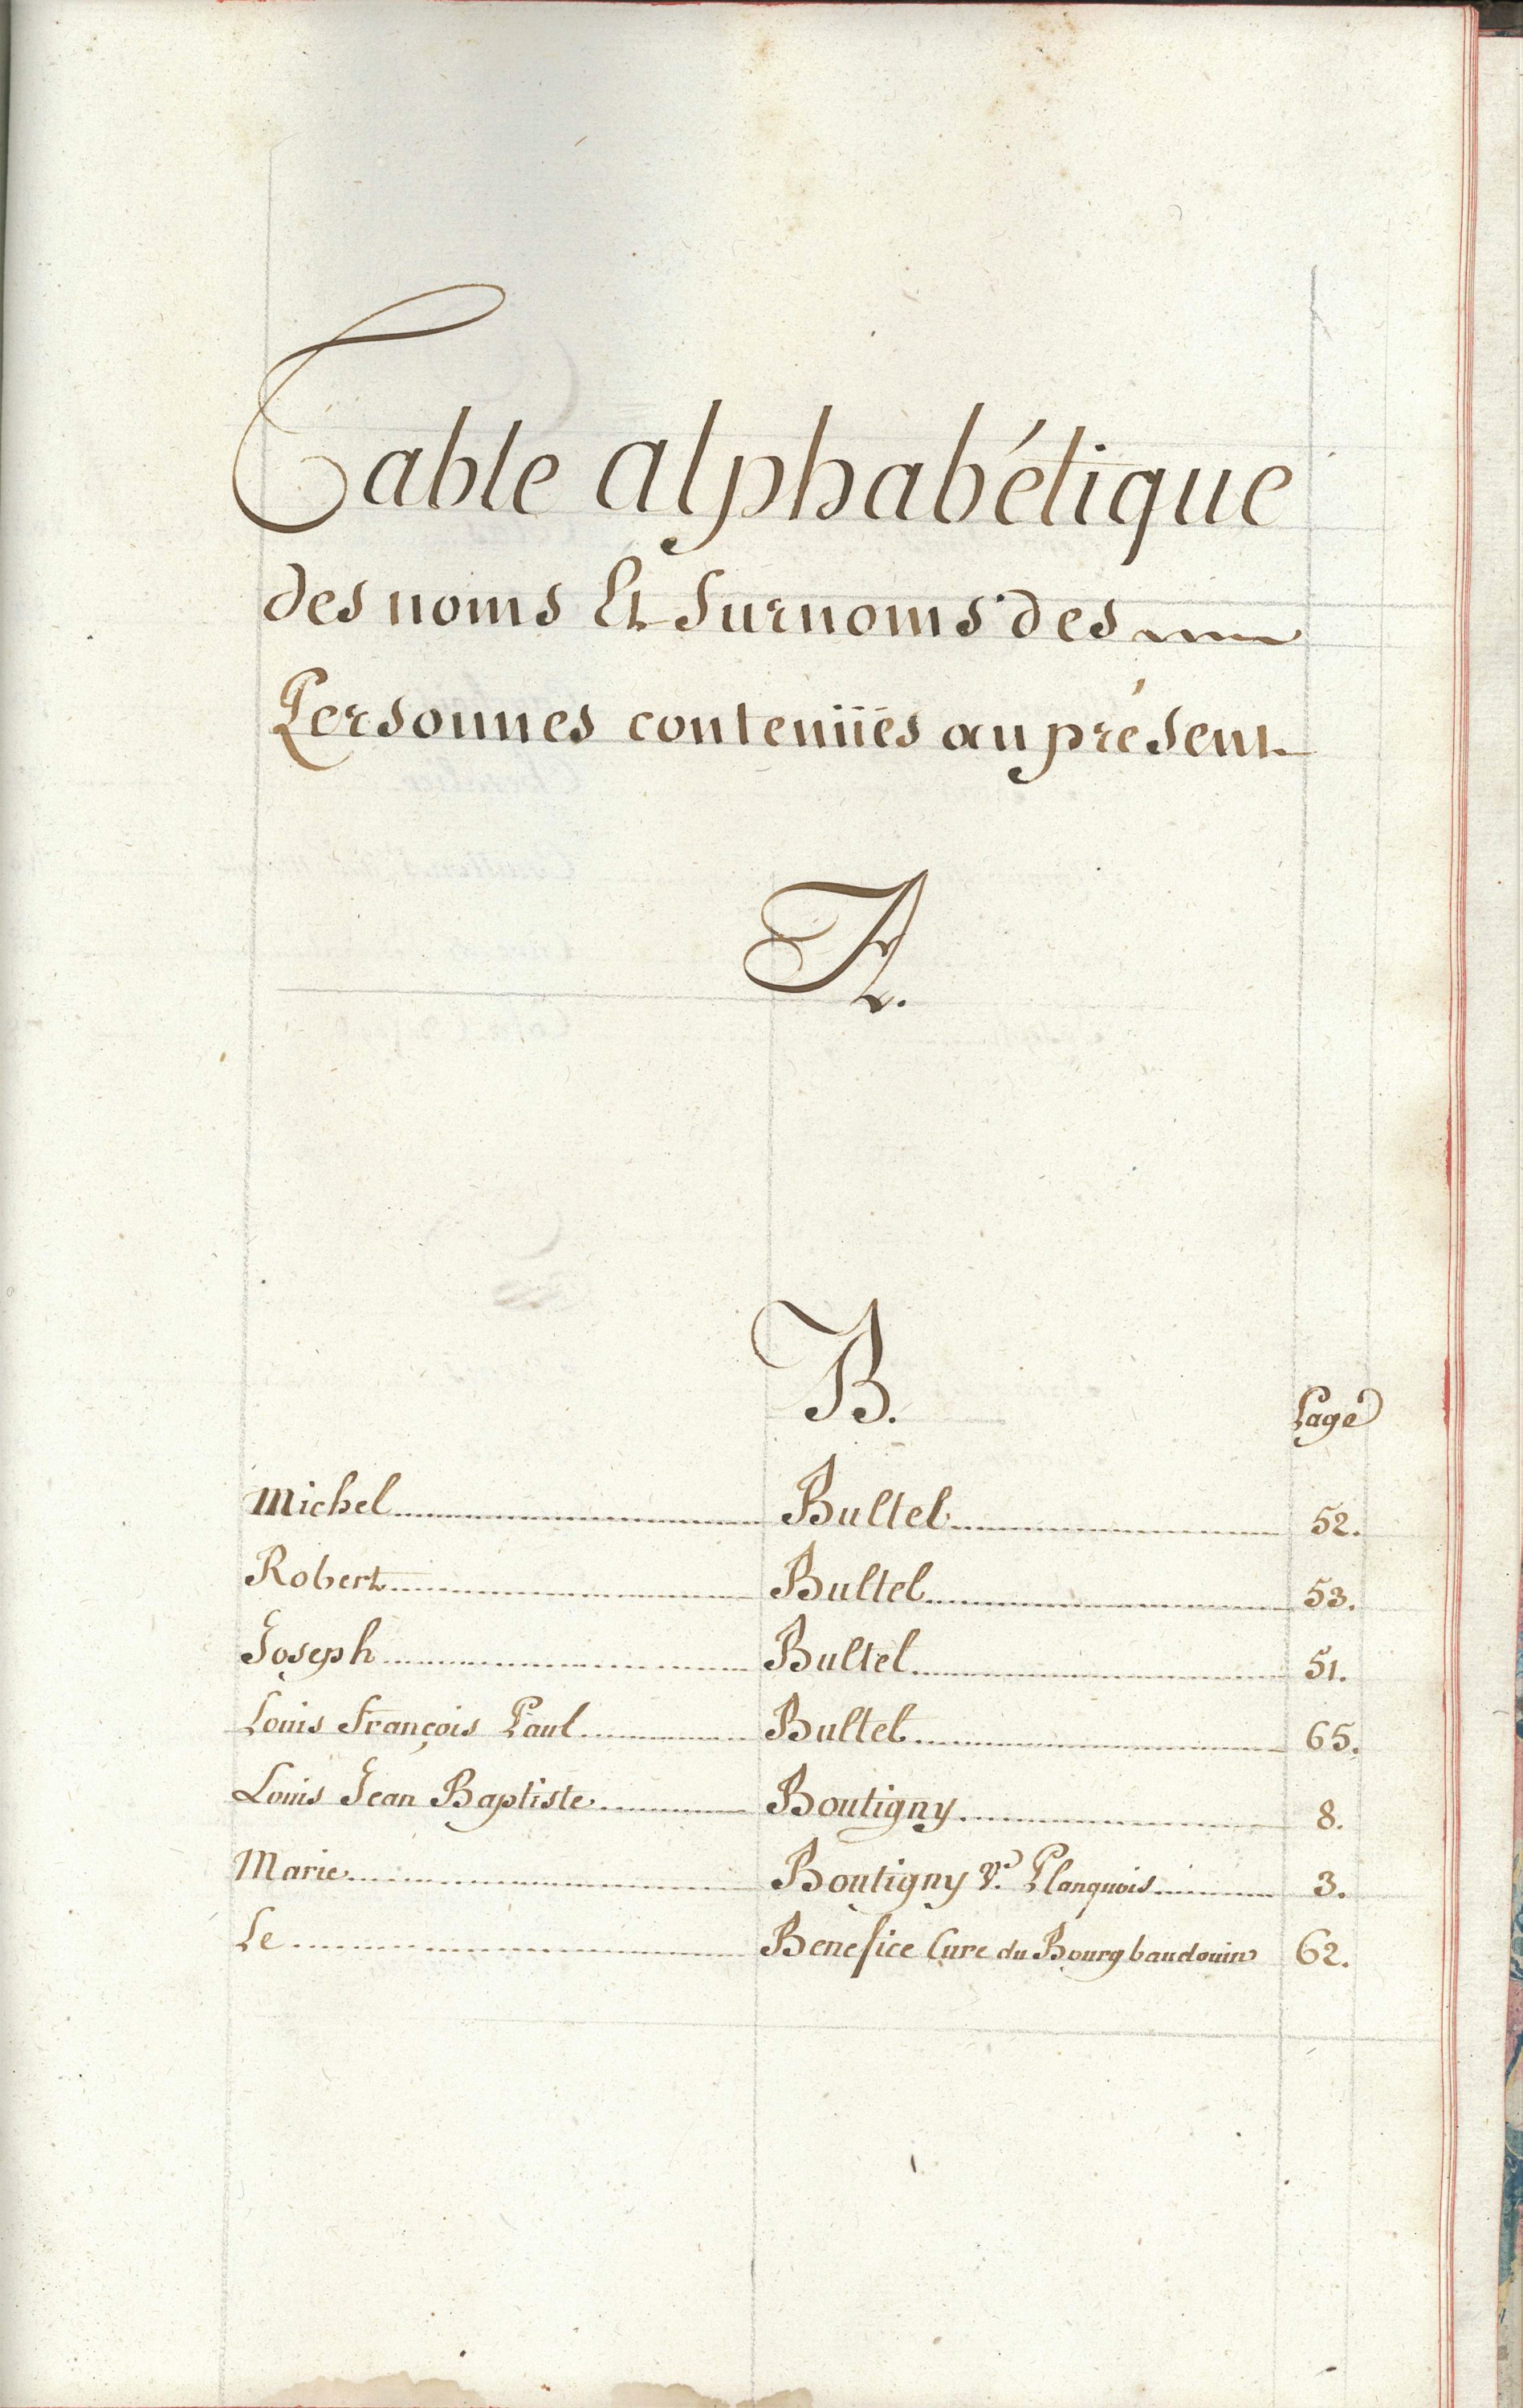 Table alphabétique
des noms Et Surnoms des
Personnes contenües au présent
A.
B.
Page
Michel Bultel 52.
Robert Bultel 53.
Joseph Bultel 51.
Louis François Paul Bultel 65.
Louis Jean Baptiste Boutigny 8.
Marie Boutigny Ve. Planquois 3.
Le Benefice Cure du Bourgbaudouin 62.